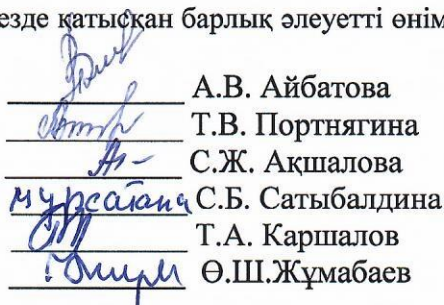 езде қатысқан барлық әлеуетті өнім
А.В. Айбатова
Т.В. Портнягина
С.Ж. Ақшалова
С.Б. Сатыбалдина
Т.А. Каршалов
Ө.Ш.Жұмабаев